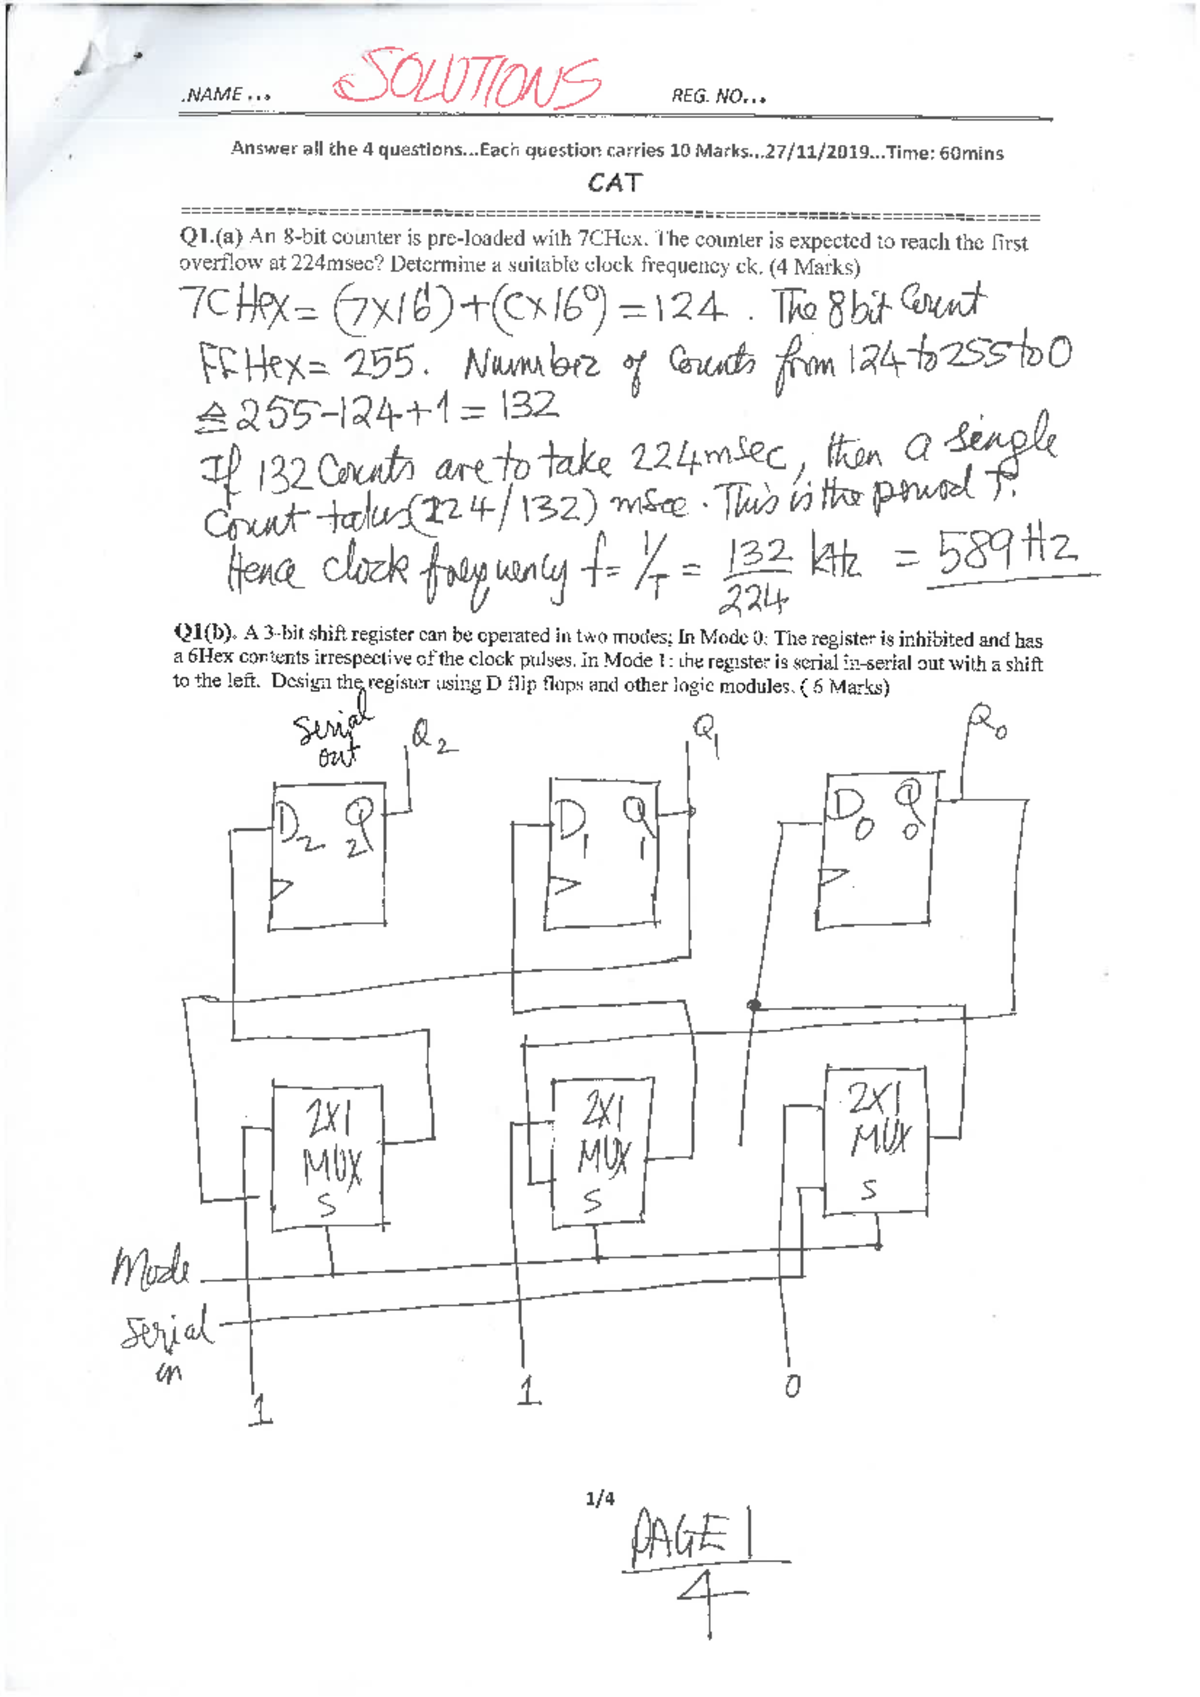 .NAME...
SOLUTIONS
REG. NO...
Answer all the 4 questions...Each question carries 10 Marks...27/11/2019...Time: 60mins
CAT
Q1.(a) An 8-bit counter is pre-loaded with 7CHex. The counter is expected to reach the first
overflow at 224msec? Determine a suitable clock frequency ck. (4 Marks)
7CHex = (7×16¹)+(C×16⁰) = 124 . The 8 bit Count
FFHex = 255. Number of Counts from 124 to 255 to 0
≙ 255-124+1 = 132
If 132 Counts are to take 224msec, then a single
Count takes (224/132) msec. This is the period T.
Hence clock frequency f = 1/T = 132/224 kHz = 589Hz
Q1(b). A 3-bit shift register can be operated in two modes; In Mode 0: The register is inhibited and has
a 6Hex contents irrespective of the clock pulses. In Mode 1: the register is serial in-serial out with a shift
to the left. Design the register using D flip flops and other logic modules. ( 6 Marks)
Serial
out
Q2
Q1
Q0
D2 Q2
D1 Q1
D0 Q0
2X1
MUX
S
2X1
MUX
S
2X1
MUX
S
Mode
Serial
in
1
1
0
1/4
PAGE 1
4